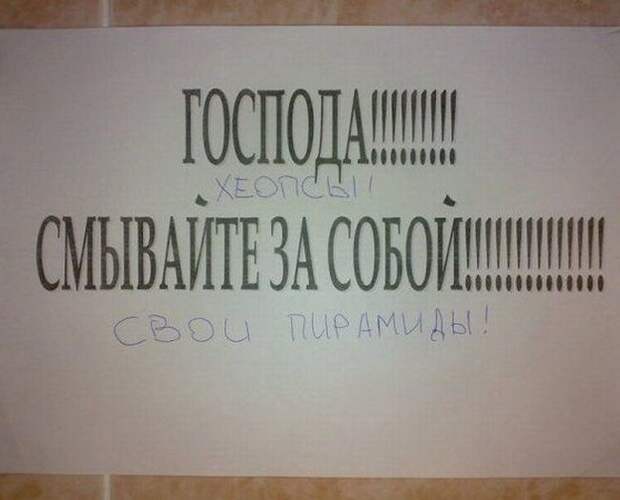 ГОСПОДА!!!!!!!!!
ХЕОПСЫ!!
СМЫВАЙТЕ ЗА СОБОЙ!!!!!!!!!!!!!!!
СВОИ ПИРАМИДЫ!